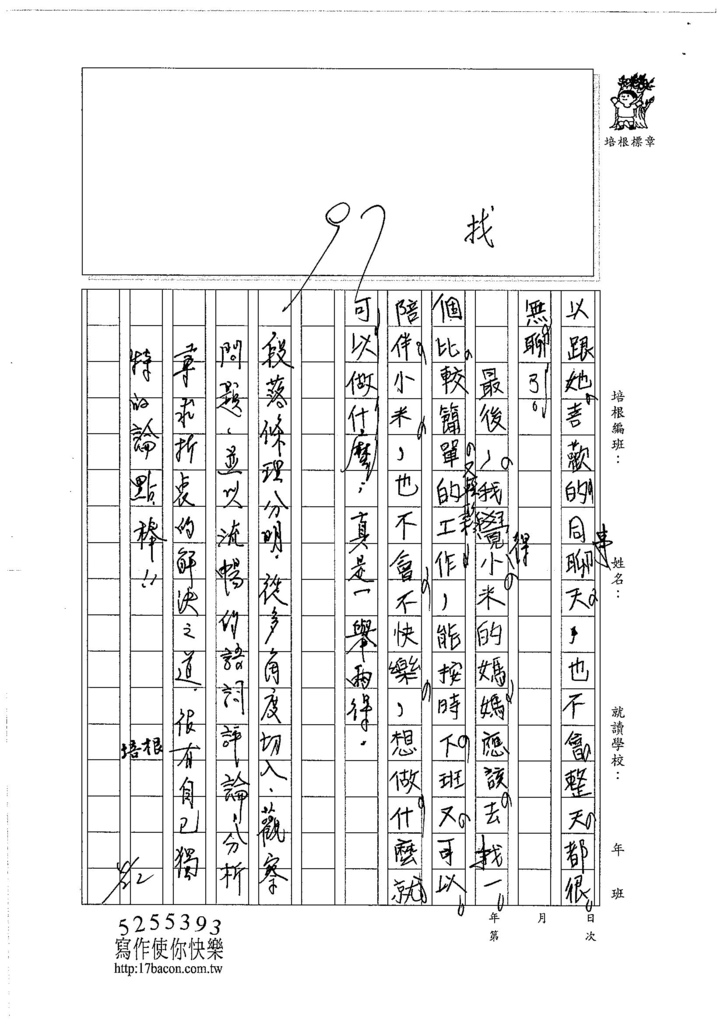 培根標章
97
找
培根編班：
姓名：
就讀學校：
年 班
年 月 日
第 次
以跟她喜歡的同事聊天，也不會整天都很
無聊了。
最後，我覺得小米的媽媽應該去找一
個比較簡單的工作，能按時下班又可以
陪伴小米，也不會不快樂，想做什麼就
可以做什麼，真是一舉兩得。
段落條理分明，從多角度切入、觀察
問題，並以流暢的語詞評論、分析
尋求折衷的解決之道，很有自己獨
特的論點，棒!!
培根
5255393
寫作使你快樂
http:17bacon.com.tw